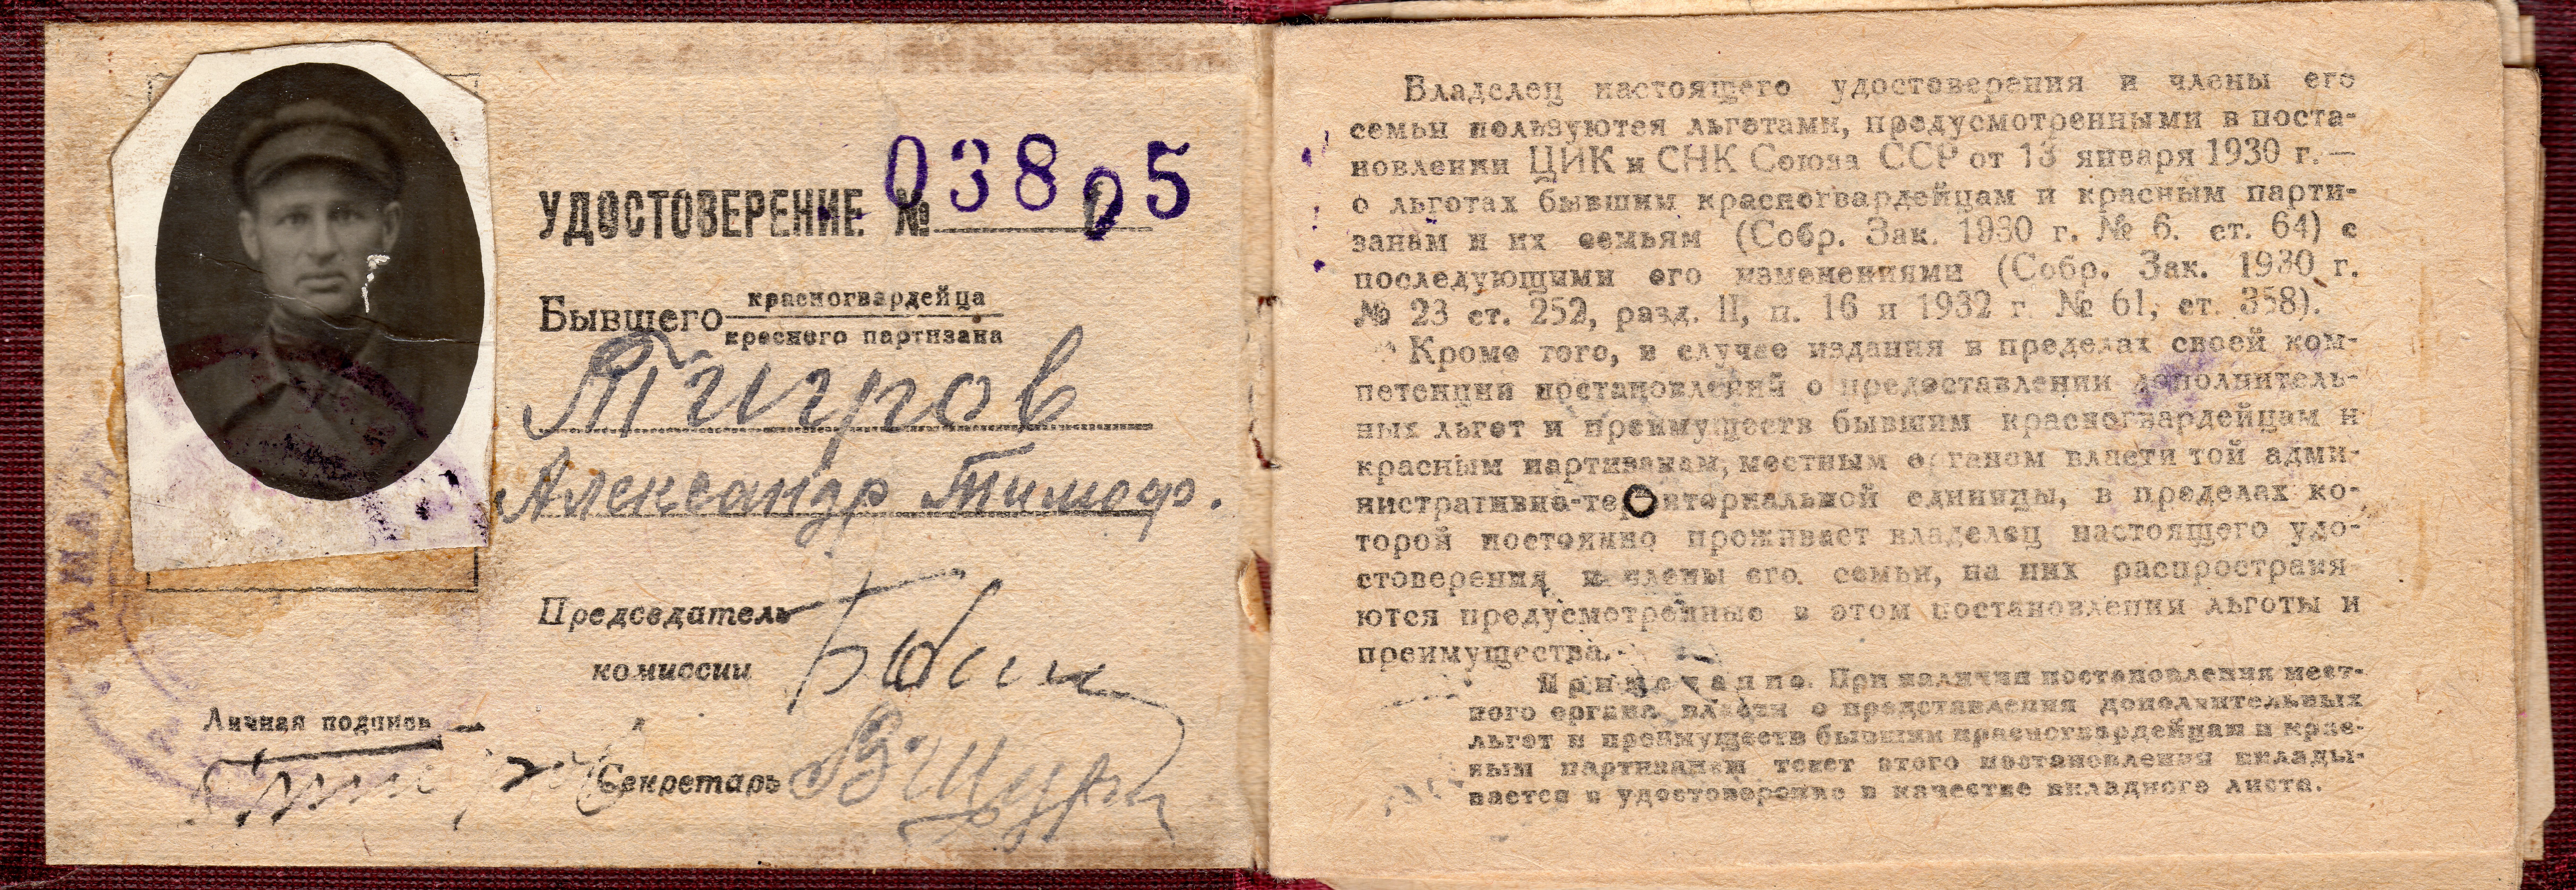 УДОСТОВЕРЕНИЕ № 03805
Бывшего красногвардейца
красного партизана
Тигров
Александр Тимоф.
Председатель
комиссии
Личная подпись
Секретарь
Владелец настоящего удостоверения и члены его
семьи пользуются льготами, предусмотренными в поста-
новлении ЦИК и СНК Союза ССР от 13 января 1930 г.—
о льготах бывшим красногвардейцам и красным парти-
занам и их семьям (Собр. Зак. 1930 г. № 6. ст. 64) с
последующими его изменениями (Собр. Зак. 1930 г.
№ 23 ст. 252, разд. II, п. 16 и 1932 г. № 61, ст. 358).
Кроме того, в случае издания в пределах своей ком-
петенции постановлений о предоставлении дополнитель-
ных льгот и преимуществ бывшим красногвардейцам и
красным партизанам, местным органом власти той адми-
нистративно-территориальной единицы, в пределах ко-
торой постоянно проживает владелец настоящего удо-
стоверения и члены его семьи, на них распростраия
ются предусмотренные в этом постановлении льготы и
преимущества.
Примечание. При наличии постановления мест-
ного органа власти о представлении дополнительных
льгот и преимуществ бывшим красногвардейцам и крас-
ным партизанам текст этого постановления вклады-
вается в удостоверение в качестве вкладного листа.